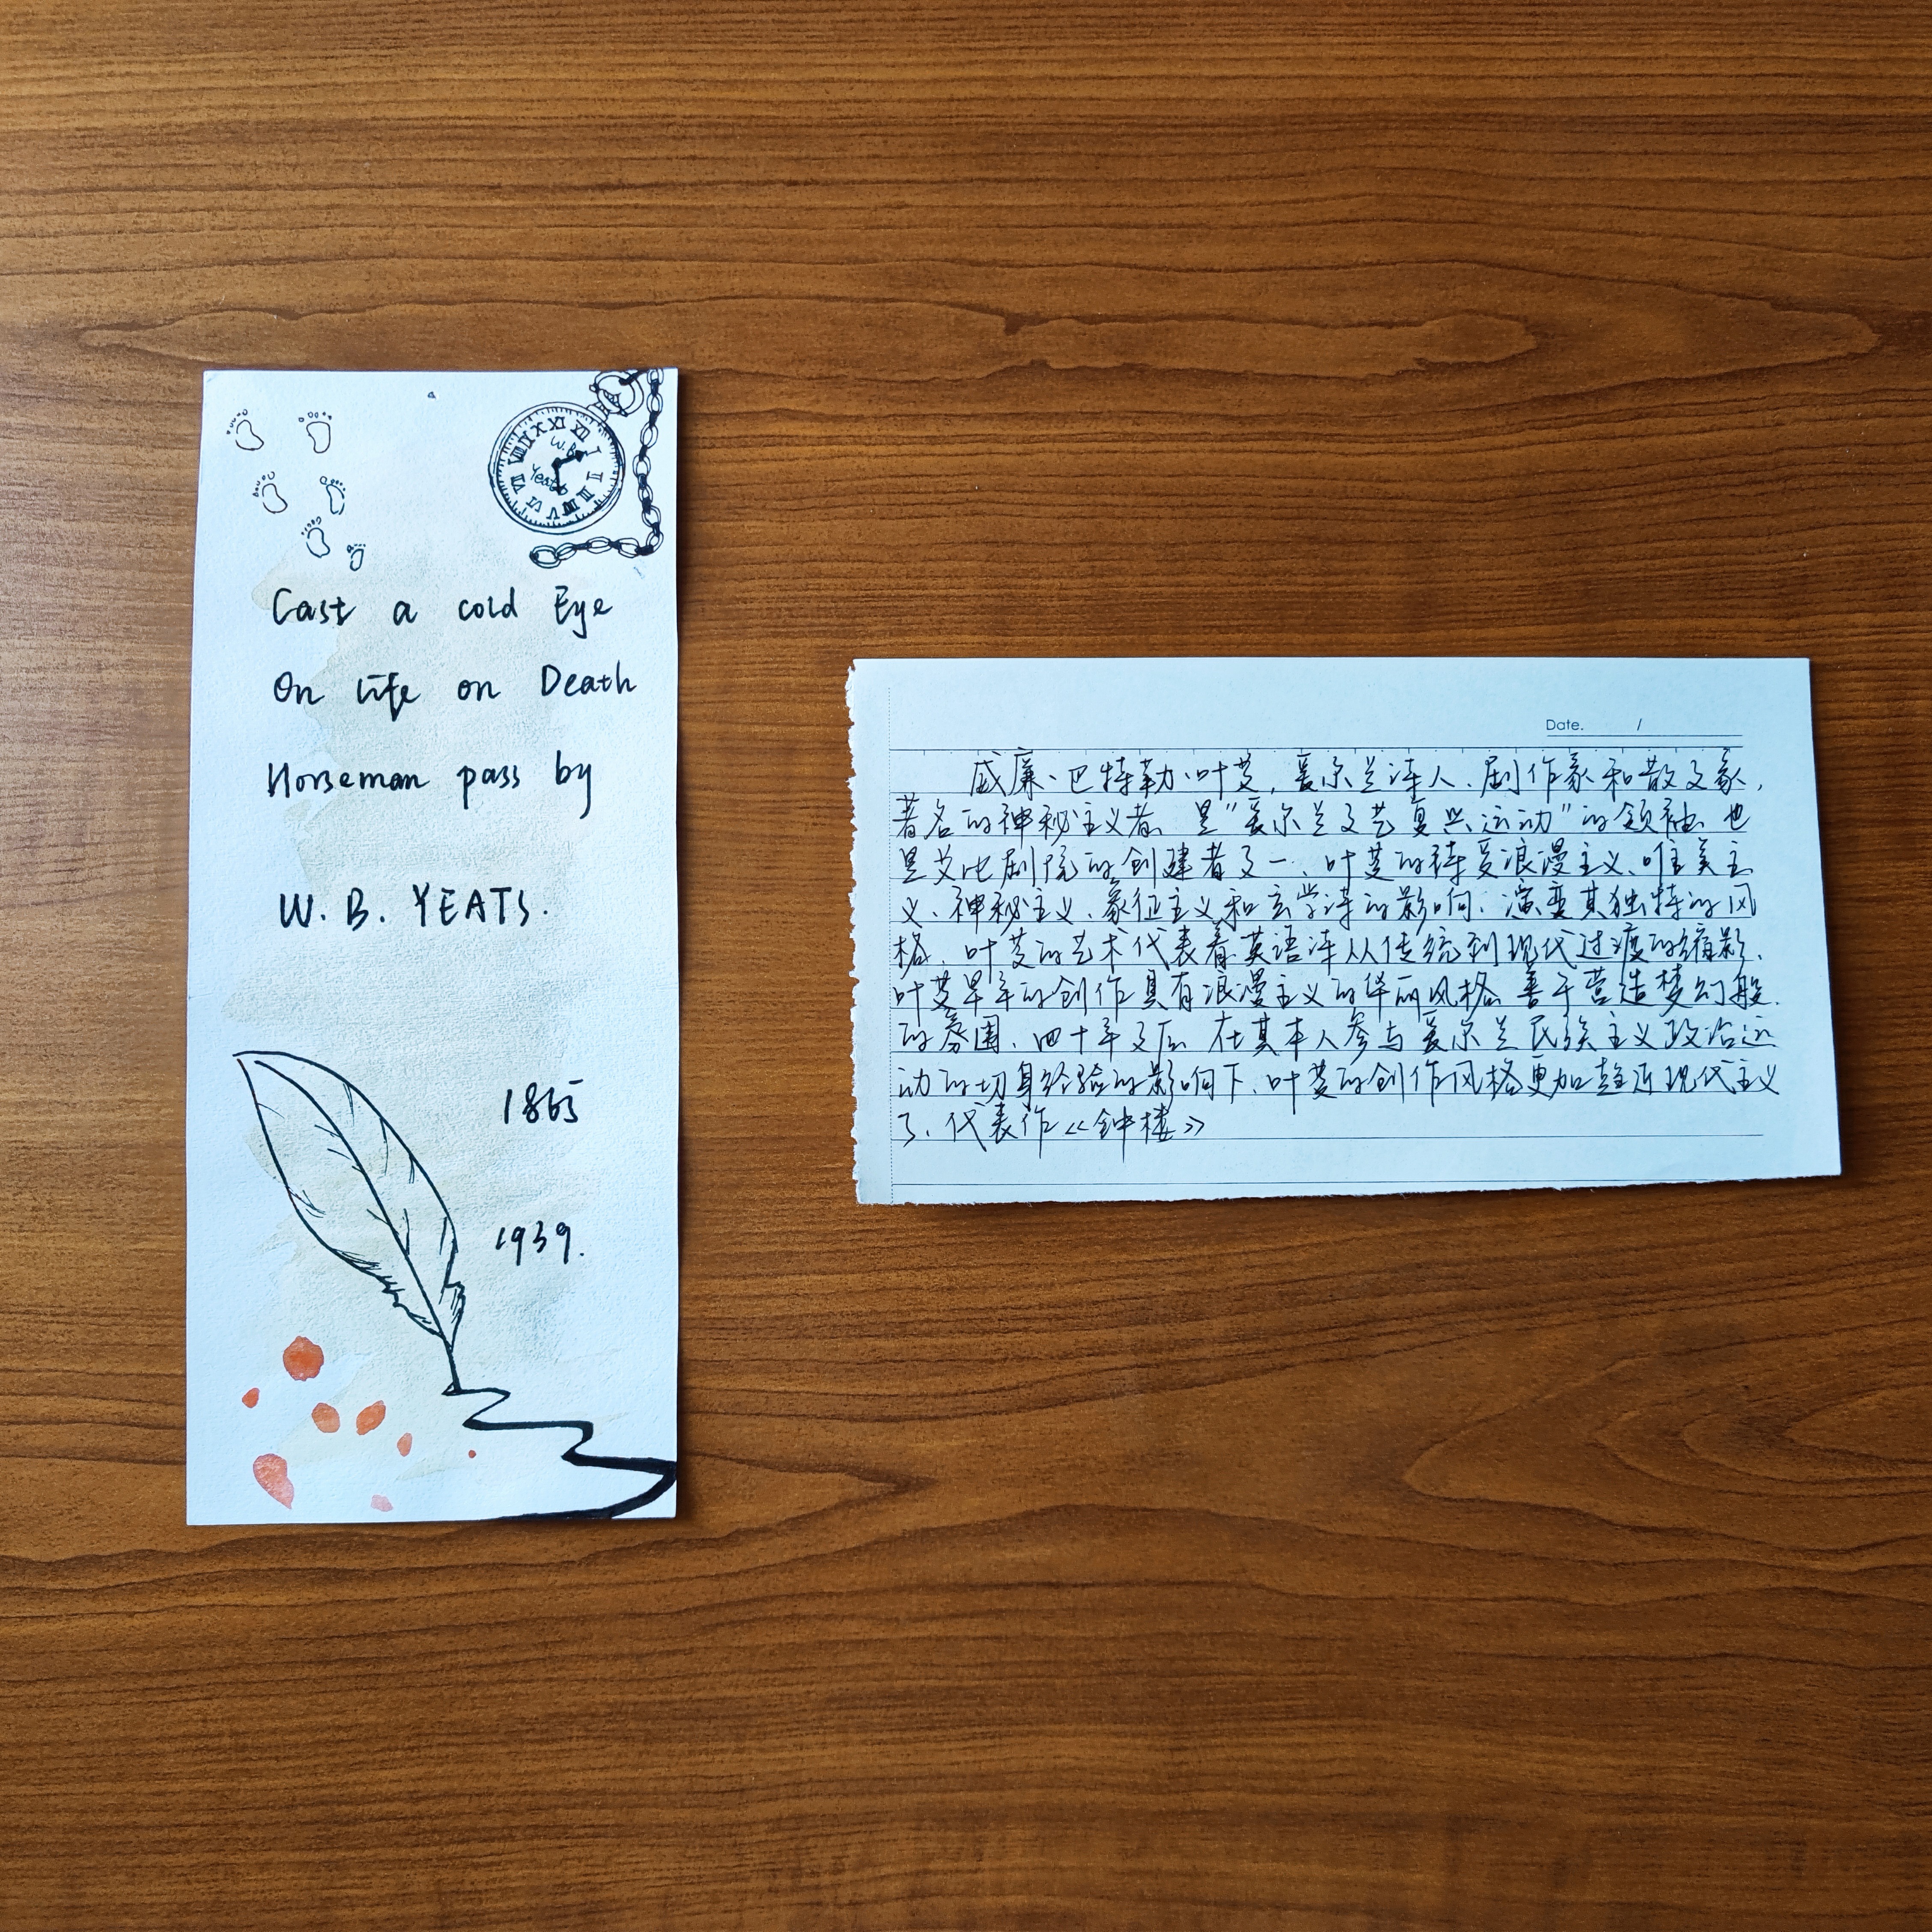 W.B
Yeats
XII
I
II
III
IIII
V
VI
VII
VIII
IX
X
XI
Cast a cold Eye
On life on Death
Horseman pass by
W. B. YEATS.
1865
1939.
Date. /
威廉·巴特勒·叶芝,爱尔兰诗人、剧作家和散文家,
著名的神秘主义者、是"爱尔兰文艺复兴运动"的领袖、也
是艾比剧院的创建者之一、叶芝的诗受浪漫主义、唯美主
义、神秘主义、象征主义和玄学诗的影响、演变其独特的风
格、叶芝的艺术代表着英语诗从传统到现代过渡的缩影、
叶芝早年的创作具有浪漫主义的华丽风格、善于营造梦幻般
的氛围、四十年之后、在其本人参与爱尔兰民族主义政治运
动的切身经验的影响下、叶芝的创作风格更加趋近现代主义
了、代表作《钟楼》